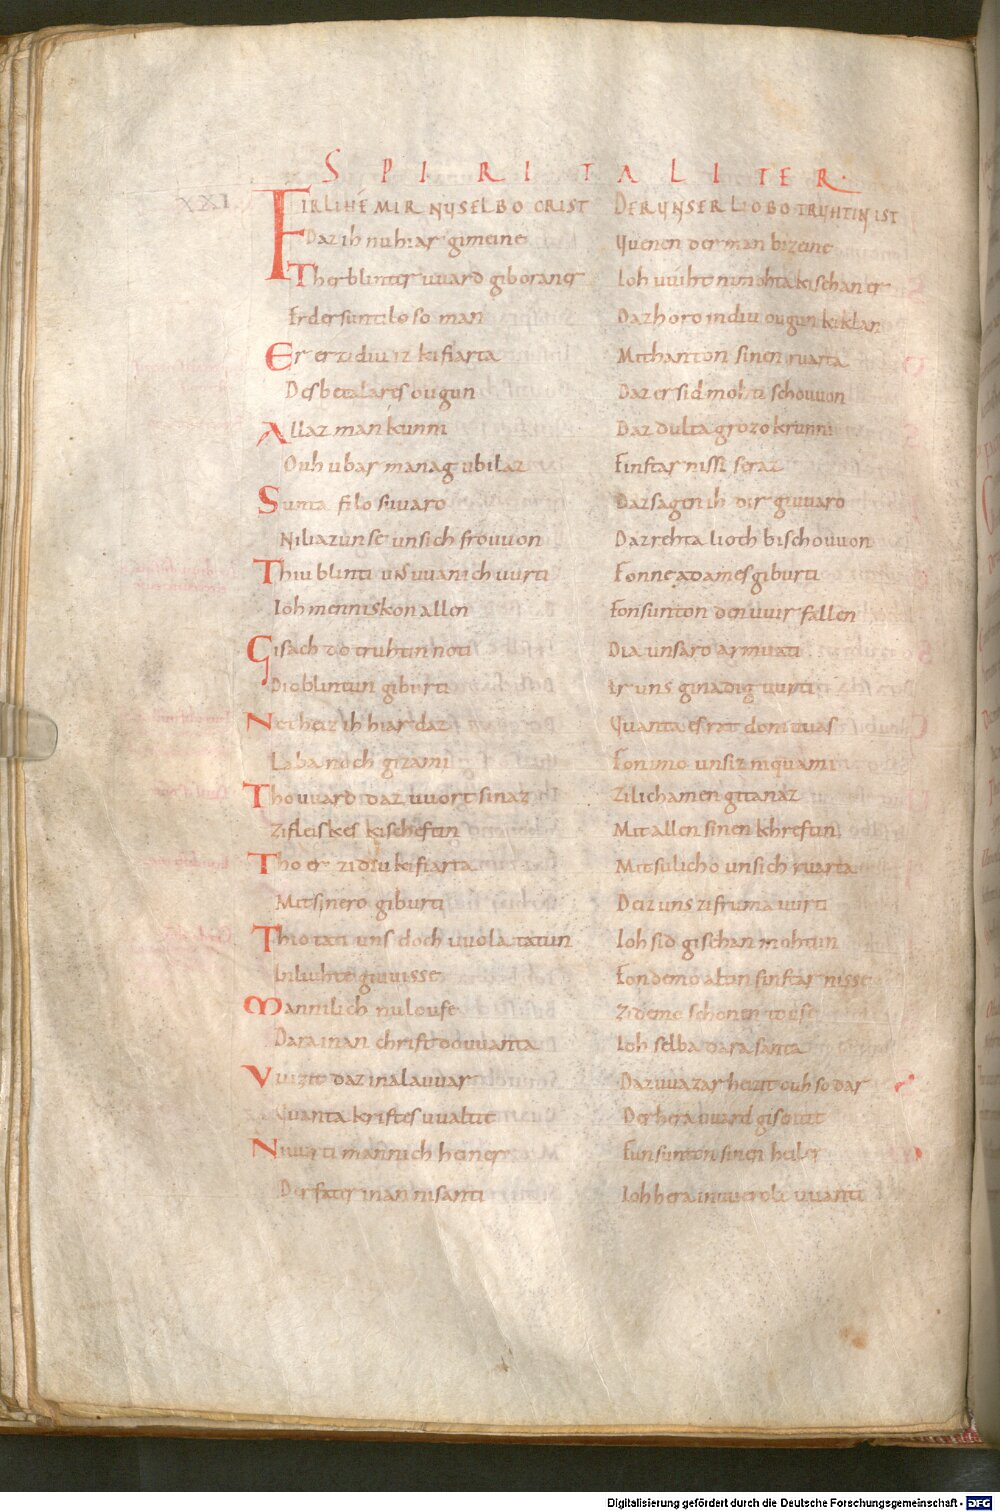 SPIRITALITER.
XXI. FIRLIHÉ MIR NU SELBO CRIST DER UNSER LIOBO TRUHTIN IST
Daz ih nu hiar gimeine Quenen der man bizeine
Ther blinter uuard giboraner Ioh uuiht ni mohta kischan er
Er der suntiloso man Daz horo in diu ougun kiklan
Er er zi diu iz kifiarta Mit hanton sinen ruarta
Des betalares ougun Daz er sid mohti schouuon
Allaz mankunni Daz dulta grozo krunni
Ouh ubar manag ubilaz Finstarnissi seraz
Sunta filo suuaro Daz sagen ih dir giuuaro
Ni liazun se unsich frouuon Daz rehta lioth bischouuon
Thiu blinti uns uuanich uurti Fonne adames giburti
Ioh menniskon allen Fon sunton den uuir fallen
Gisach do truhtin noti Dia unsaro armuati
Dio blintun giburti Ir uns ginadig uurti
Ni theiz ih hiar daz Quanta es rat dom tuas
Laba noch gizami Fon imo unsiz niquami
Tho uuard daz uuort sinaz Zi lichamen gitanaz
Zi fleiskes kischeftin Mit allen sinen khreftin
Tho er zi diu kifiarta Mit sulicho unsich ruarta
Mit sinero giburti Deiz uns zi fruma uurti
Thio tati uns doch uuola tatun Ioh sid gischan mohtun
biliuhte giuuisse Fon demo alten finstarnisse
Mannilich nu loufe Zi deme schonen toufe
Dara inan christ do uuanta Ioh selba dara santa
Uuizit daz in alauuar Daz uuazar heizit ouh so dar
Quanta kristes uualtit Der hera uuard gisentit
Ni uurti mannich heiner Fun sunton sinen heiler
Der fater inan ni santi Ioh hera in uuerolt uuanti
Digitalisierung gefördert durch die Deutsche Forschungsgemeinschaft - DFG